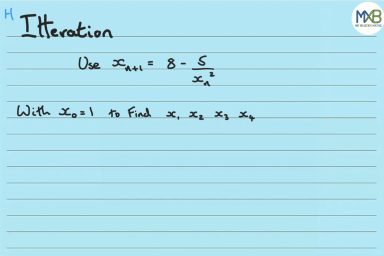 H
Itteration
MXB
Use xₙ₊₁ = 8 - 5/xₙ²
With x₀=1 to Find x₁ x₂ x₃ x₄